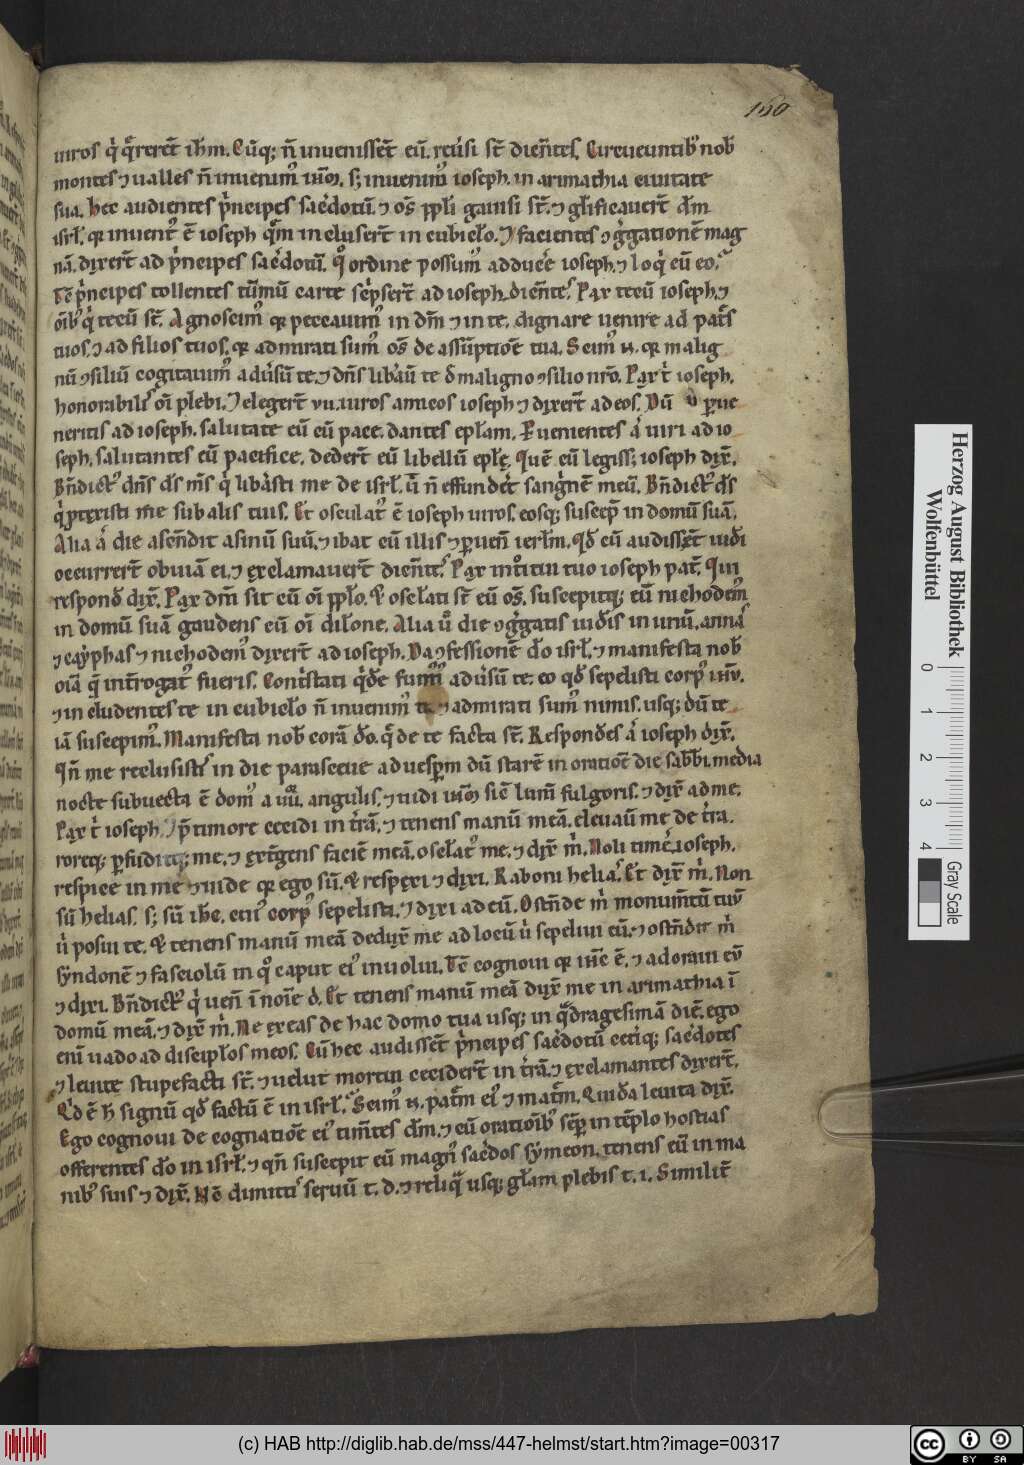 160
uiros q̇ q̄rerēt ih̄m. Cūq; n̄ inuenissēt eū. reu̇si st̄ diēntes. Circueuntib᷒ nob̄
montes ⁊ ualles n̄ inuenim᷒ ih̄m. s; inuenim᷒ ioseph. in arimathia ciuitate
sua. Hec audientes p̄ncipes sac̄dotū. ⁊ om̄s ppl̄i gauisi st̄. ⁊ gl̄ificauer̄t dm̄
isrl̄. qr inuent᷒ ē ioseph quē incluser̄t in cubiclo. ⁊ facientes ꝯg̓gationē mag
nā. dixer̄t ad p̄ncipes sac̄dotū. q̊ ordine possum᷒ adduc̄e ioseph. ⁊ loq̇ cū eo.
Tc̄ p̄ncipes tollentes tūmū carte sc̓pser̄t ad ioseph. diēntes. Pax tecū ioseph. ⁊
oīb᷒ q̇ tecū st̄. Agnoscim᷒ qr peccauim᷒ in dm̄ ⁊ in te. dignare uenire ad pat̄s
tuos. ⁊ ad filios tuos. qr admirati sum᷒ om̄s de assūptiōe tua. Scim᷒ n. qr malig
nū ꝯsiliū cogitauim᷒ adu̇sū te. ⁊ dn̄s libāuı̄t te d̄ maligno ꝯsilio nr̄o. Pax t̓ ioseph.
honorabilis oı̄ plebi. ⁊ eleger̄t vıı. uiros amicos ioseph ⁊ dixer̄t ad eos. Dū ꝑue
neritis ad ioseph. salutate eū cū pace. dantes epl̄am. Euenientes a̓ uiri ad io
seph. salutantes eū pacifice. deder̄t eū libellū epl̄ę. Quē cū legiss; ioseph dix̄.
Bn̄dict᷒ dn̄s ds̄ ms̄ q̇ liba̓sti me de isrl̄. ut n̄ effundet̓ sangnē meū. Bn̄dict᷒ ds̄
q̇ ꝓtexisti me sub alis tuis. Et osculat᷒ ē ioseph uiros. eosq; suscep̄ in domū suā.
Alia a̓ die ascn̄dit asinū suū. ⁊ ibat cū illis ⁊ ꝑuen̄ ierl̄m. Qd̄ cū audissēt iudı̓
occurrer̄t obuiā ei. ⁊ exclamauer̄t diēntes. Pax int̓oitui tuo ioseph pat̄. Qui
respond̄ dix̄. Pax dn̄i sit cū oı̄ ppl̄o. Et oscl̄ati st̄ eū om̄s. suscepitq; eū nichodem᷒
in domū suā gaudens cū oı̄ dil̄one. Alia u̓ die ꝯg̓gatis iudı̓s in unū. annas
⁊ cayphas ⁊ nichodem᷒ dixer̄t ad ioseph. Da ꝯfessionē dō isrl̄. ⁊ manifesta nob̄
oı̄a q̄ int̄rogat᷒ fueris. Cont̓stati q̇de sum᷒ adu̇sū te. eo qd̄ sepelisti corp᷒ ih̄u.
⁊ includentes te in cubiclo n̄ inuenim᷒ te. ⁊ admirati sum᷒ nimis. usq; dū te
iā suscepim᷒. Manifesta nob̄ corā dō. q̄ de te facta st̄. Respondēs a̓ ioseph dix̄.
Qn̄ me reclusistis in die parasceue ad uesꝑm dū starē in oratiōe die sabbi. media
nocte subuecta ē dom᷒ a ıııı. angulis. ⁊ uidi ih̄m sic̄ lum̄ fulgoris. ⁊ dix̄ ad me.
Pax t̓ ioseph. ⁊ p̄ timore cecidi in tr̄ā. ⁊ tenens manū meā. eleuauı̄t me de tr̄a.
roreq; ꝑfudit me. ⁊ ext̓gens faciē meā. oscl̄at᷒ me. ⁊ dix̄ m̓. Noli timē. ioseph.
respice in me ⁊ uide qr ego sū. Et respexi ⁊ dixi. Raboni helias. Et dix̄ m̓. Non
sū helias. s; sū ih̄c. cui᷒ corp᷒ sepelisti. ⁊ dixi ad eū. Ostn̄de m̓ monumt̄ū tuū
u̇ posui te. Et tenens manū meā dedux̄ me ad locū u̇ sepeliui eū. ⁊ ostn̄dit m̓
syndonē ⁊ fasciolū in q̊ caput ei᷒ inuolui. Tc̄ cognoui qr ih̄c ē. ⁊ adoraui eū
⁊ dixi. Bn̄dict᷒ q̇ uen̄ ı̄ noı̄e dı̓. Et tenens manū meā dux̄ me in arimathia ı̄
domū meā. ⁊ dix̄ m̓. Ne exeas de hac domo tua usq; in q̓dragesimā diē. ego
enī uado ad discipl̄os meos. Cū hec audissēt p̄ncipes sac̄dotū cetiq; sac̄dotes
⁊ leuite stupefacti st̄. ⁊ uelut mortui cecider̄t in tr̄ā. ⁊ exclamantes dixer̄t.
Qd̄ ē h̄ signū qd̄ factū ē in isrl̄. Scim᷒ n. patr̄m ei᷒ ⁊ matr̄m. Quidā leuita dix̄.
Ego cognoui de cognatiōe ei᷒ timēntes dm̄. ⁊ cū oratiōib᷒ semꝑ in tēplo hostias
offerentes dō in isrl̄. ⁊ qn̄ suscepit eū magn᷒ sac̄dos symeon. tenens eū in ma
nib᷒ suis ⁊ dix̄. Nc̄ dimittis seruū t. d. ⁊ reliq̄ usq; gl̄am plebis t. i. Similit̄
Herzog August Bibliothek
Wolfenbüttel
0 1 2 3 4
Gray Scale
(c) HAB http://diglib.hab.de/mss/447-helmst/start.htm?image=00317
cc BY SA